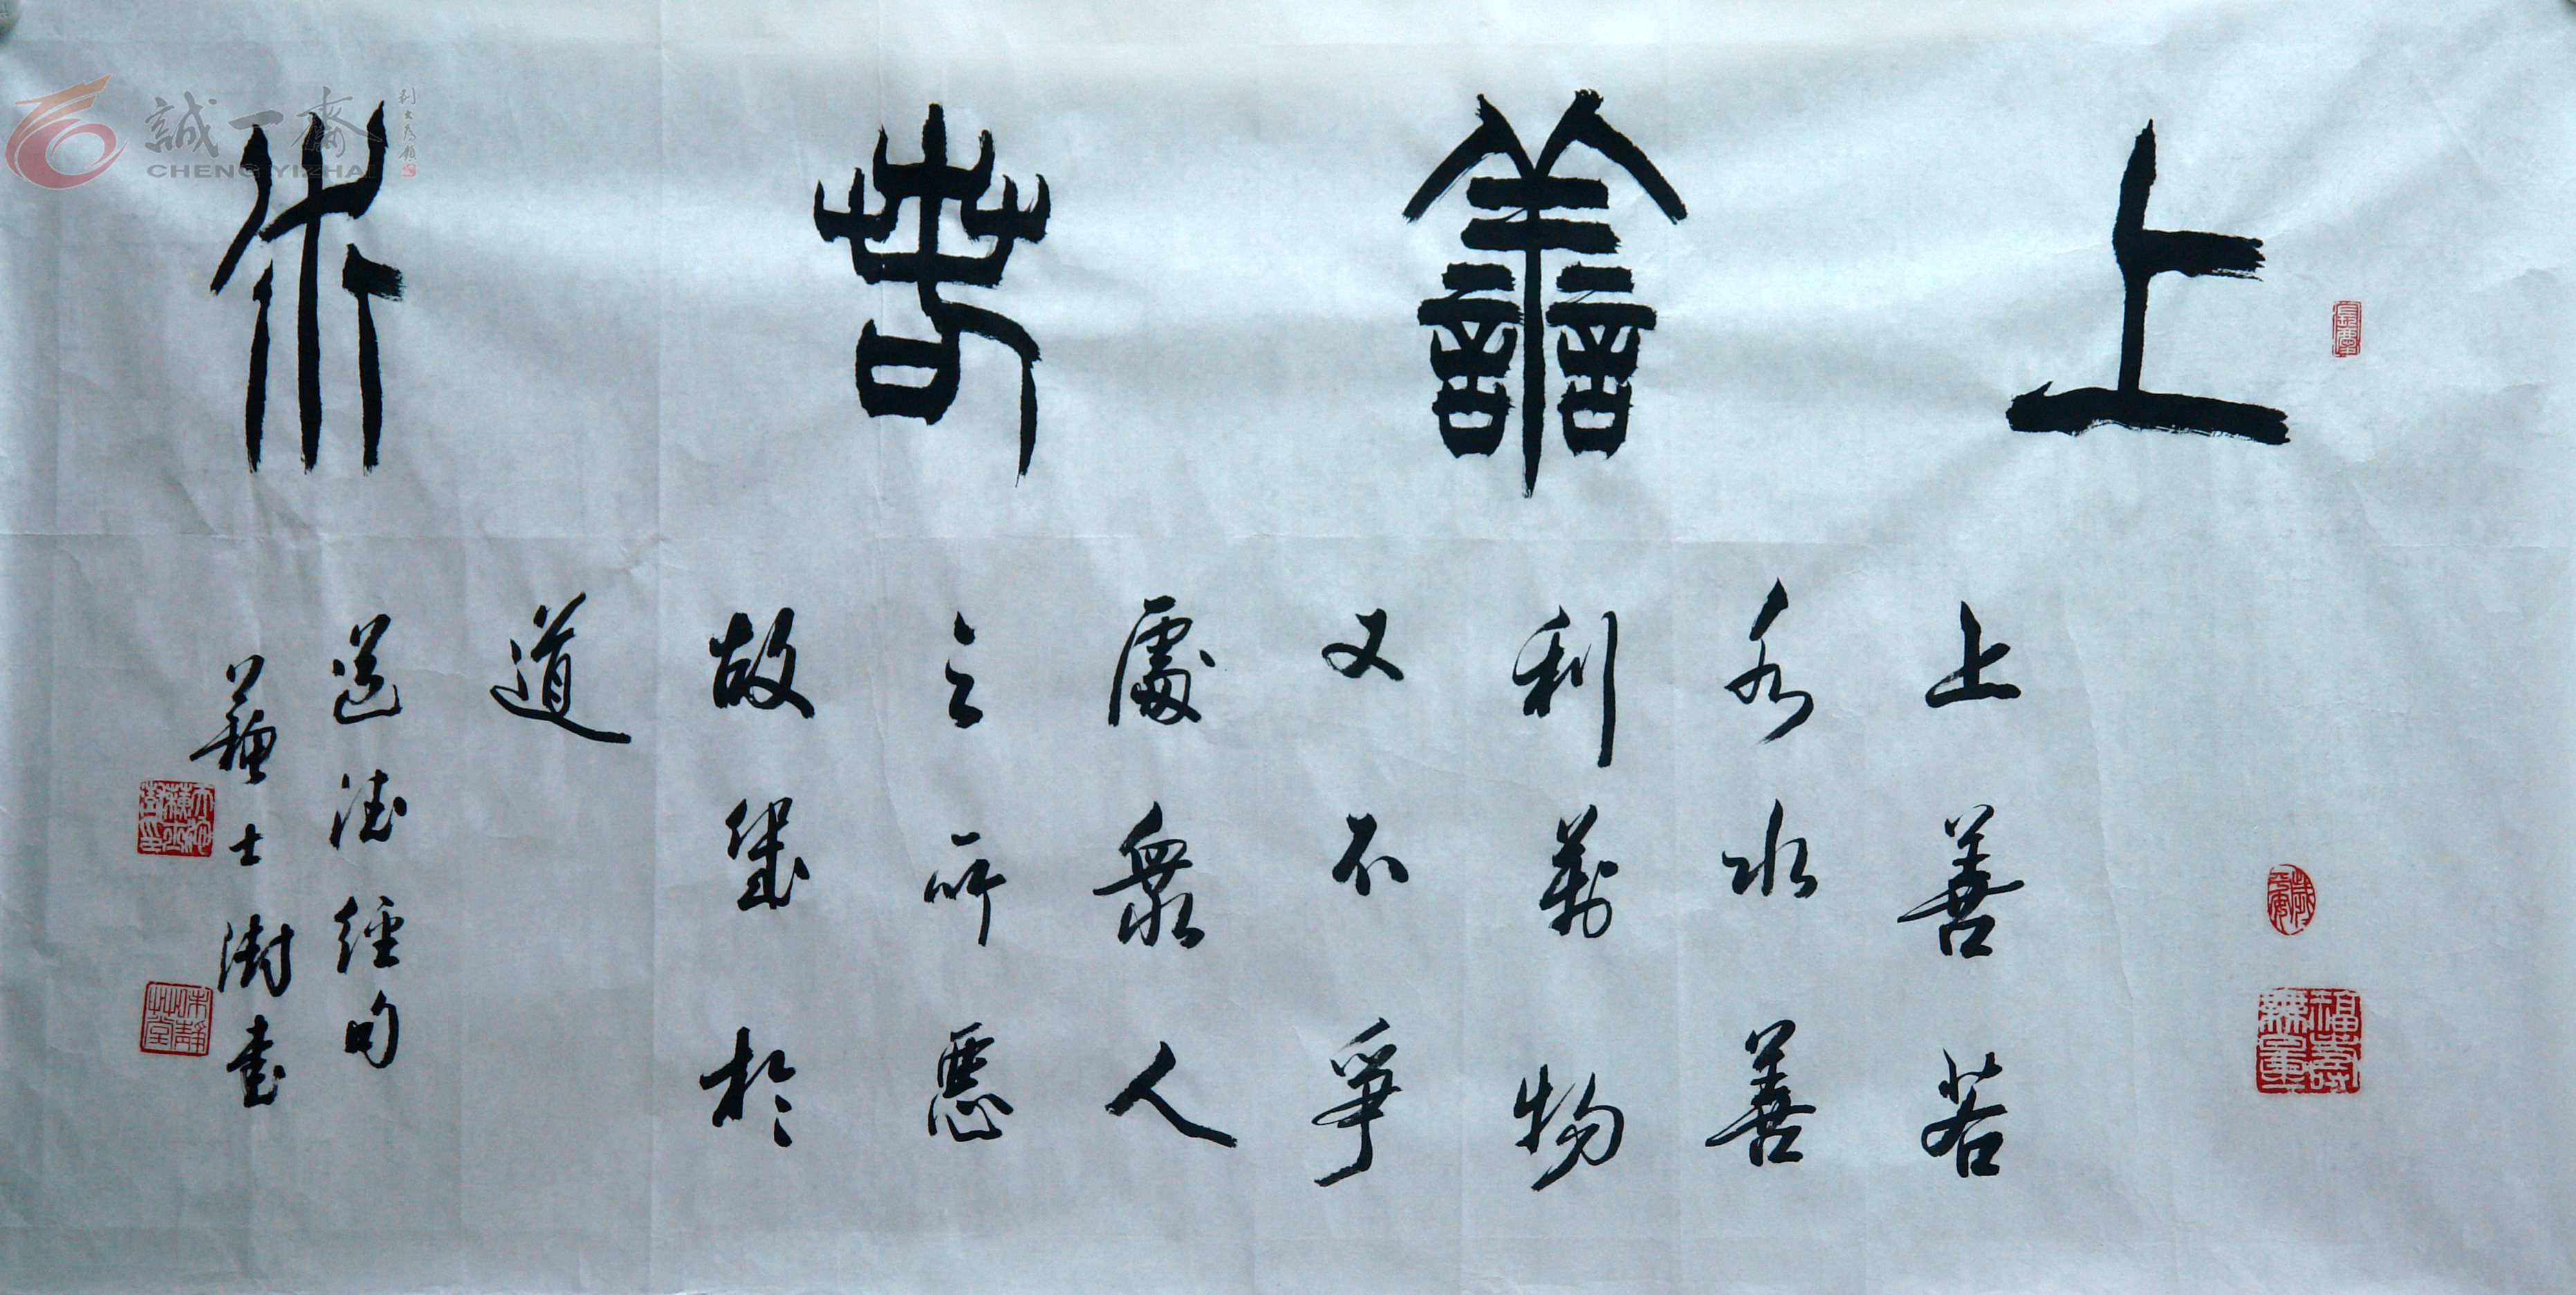 上善若水
上善若
水水善
利萬物
又不爭
處衆人
之所惡
故幾於
道
道德經句
蘇士澍書
福壽無量
誠一齋
CHENG YIZHAI